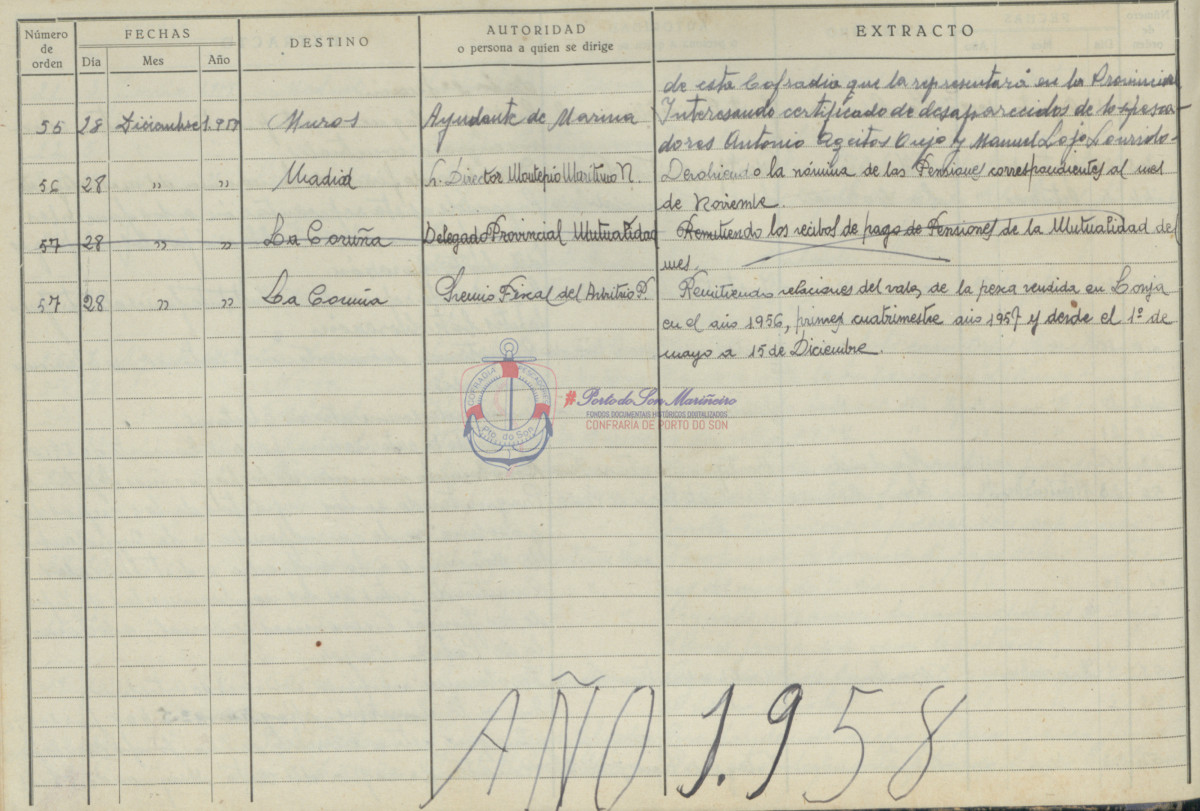 Número de orden FECHAS DESTINO AUTORIDAD o persona a quien se dirige EXTRACTO
Dia Mes Año
de esta Cofradia que la representará en la Provincia
55 28 Diciembre 1.957 Muros Ayudante de Marina Interesando certificado de desaparecidos de los pesca
dores Antonio Ageitos y Manuel Lojo Lourido
56 28 " " Madrid Sr. Director Montepio Maritimo N. Devolviendo la nómina de las Pensiones correspondientes al mes
de Noviembre.
57 28 " " La Coruña Delegado Provincial Mutualidad Remitiendo los recibos de pago de Pensiones de la Mutualidad del
mes.
57 28 " " La Coruña Gremio Fiscal del Arbitrio P. Remitiendo relaciones del valor de la pesca vendida en Lonja
en el año 1956, primer cuatrimestre año 1957 y desde el 1º de
mayo a 15 de Diciembre.
COFRADIA PESCADORES
Pto. do Son
#Porto do Son Mariñeiro
FONDOS DOCUMENTAIS HISTÓRICOS DIXITALIZADOS
CONFRARIA DE PORTO DO SON
AÑO 1.958